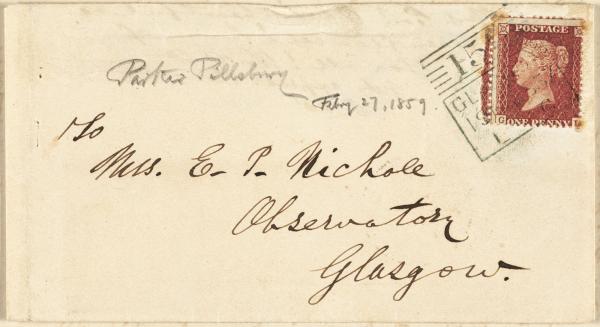 Parker Pillsbury
Feby 27, 1859.
To
Mrs. E. P. Nichole
Observatory
Glasgow.
POSTAGE
ONE PENNY
15
GL